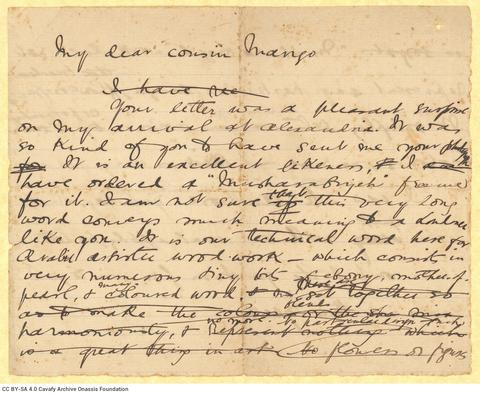 My dear cousin Marigo
I have rec
Your letter was a pleasant surprise
on my arrival at Alexandria. It was
so kind of you to have sent me your photog
for It is an excellent likeness, & I
have ordered a "Musharabiyeh" frame
for it. I am not sure that this very long
word conveys much meaning to a
like you. It is our technical word here for
Arabic artistic wood-work — which consists in
very numerous tiny bits of ebony, mother-of-
pearl, & many coloured wood, set together so
as to make the colours
harmoniously, & represent nothing which
is a great thing in art no flowers or figures
CC BY-SA 4.0 Cavafy Archive Onassis Foundation